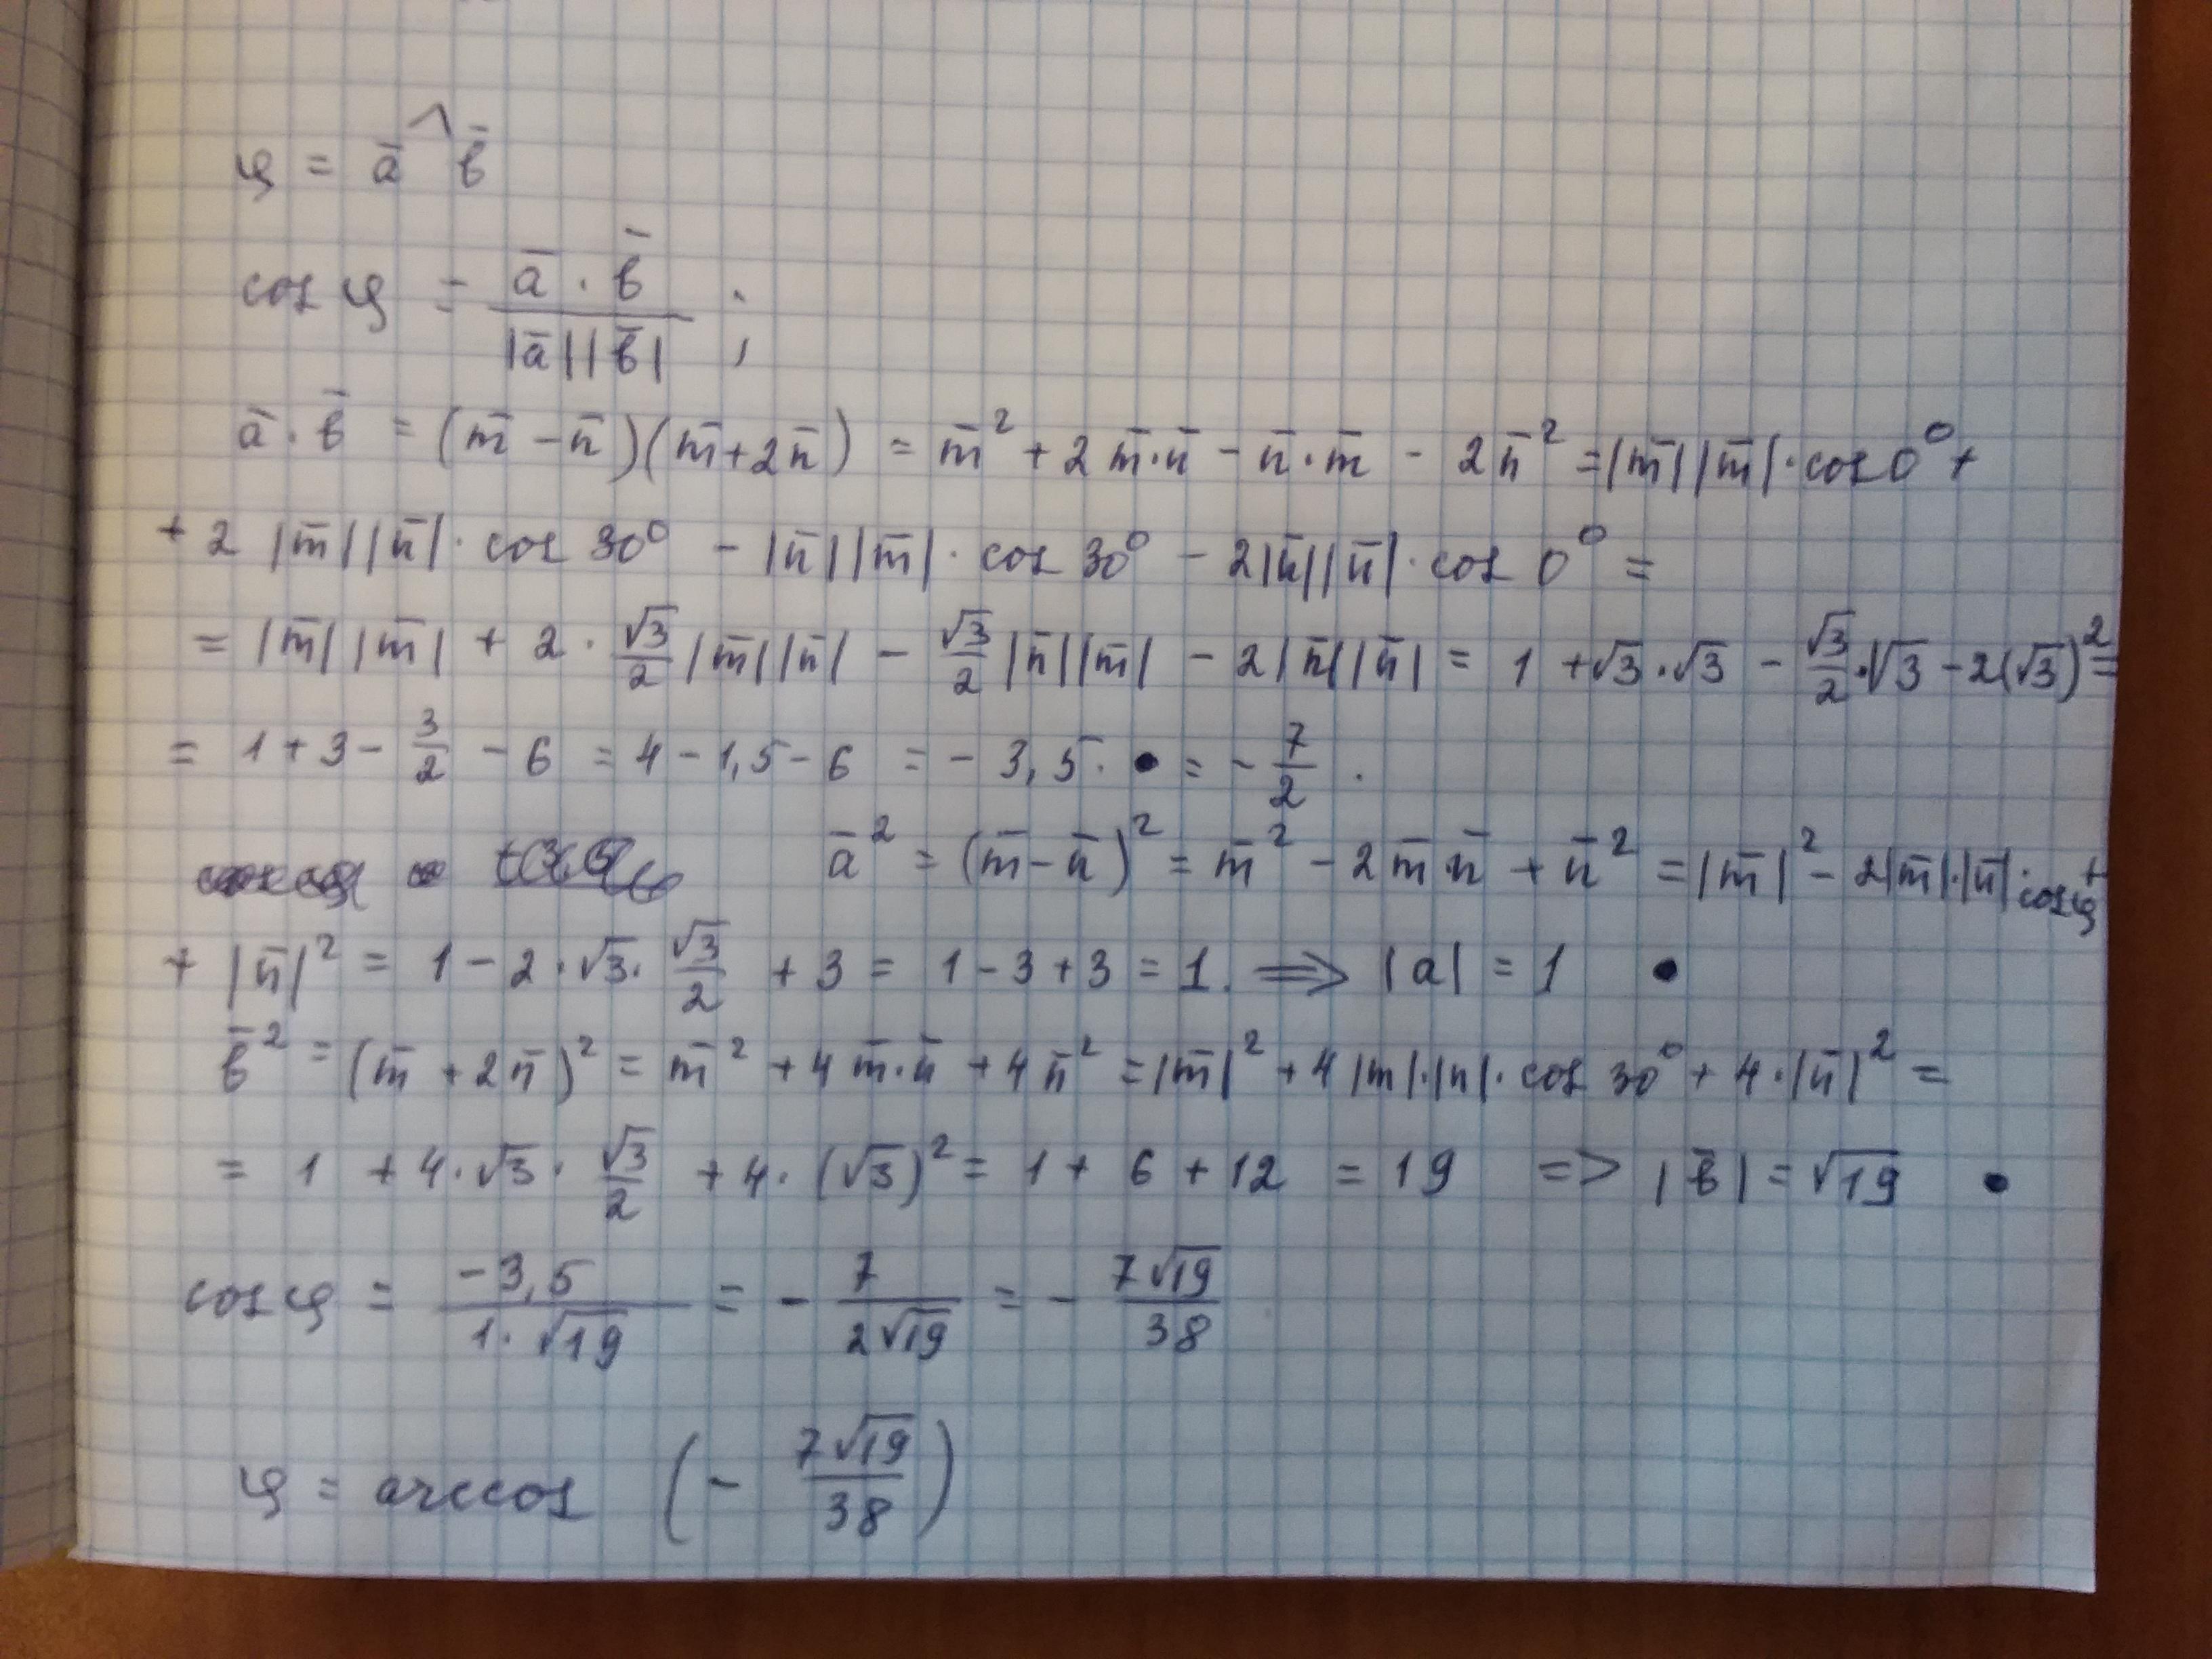 φ = a̅ ^ b̅
cos φ = a̅ · b̅ / |a̅||b̅| ;
a̅ · b̅ = (m̅ − n̅)(m̅ + 2n̅) = m̅² + 2m̅·n̅ − n̅·m̅ − 2n̅² = |m̅||m̅|·cos 0° +
+ 2 |m̅||n̅|· cos 30° − |n̅||m̅|· cos 30° − 2|n̅||n̅|· cos 0° =
= |m̅||m̅| + 2 · √3/2 |m̅||n̅| − √3/2 |n̅||m̅| − 2|n̅||n̅| = 1 + √3·√3 − √3/2·√3 − 2(√3)² =
= 1 + 3 − 3/2 − 6 = 4 − 1,5 − 6 = − 3,5. = − 7/2 .
a̅² = (m̅ − n̅)² = m̅² − 2m̅·n̅ + n̅² = |m̅|² − 2|m̅|·|n̅|·cos φ +
+ |n̅|² = 1 − 2·√3· √3/2 + 3 = 1 − 3 + 3 = 1. ⟹ |a| = 1 •
b̅² = (m̅ + 2n̅)² = m̅² + 4m̅·n̅ + 4n̅² = |m̅|² + 4|m|·|n|· cos 30° + 4·|n̅|² =
= 1 + 4·√3· √3/2 + 4· (√3)² = 1 + 6 + 12 = 19 => |b̅| = √19 •
cos φ = −3,5 / 1·√19 = − 7 / 2√19 = − 7√19 / 38
φ = arccos (− 7√19 / 38)